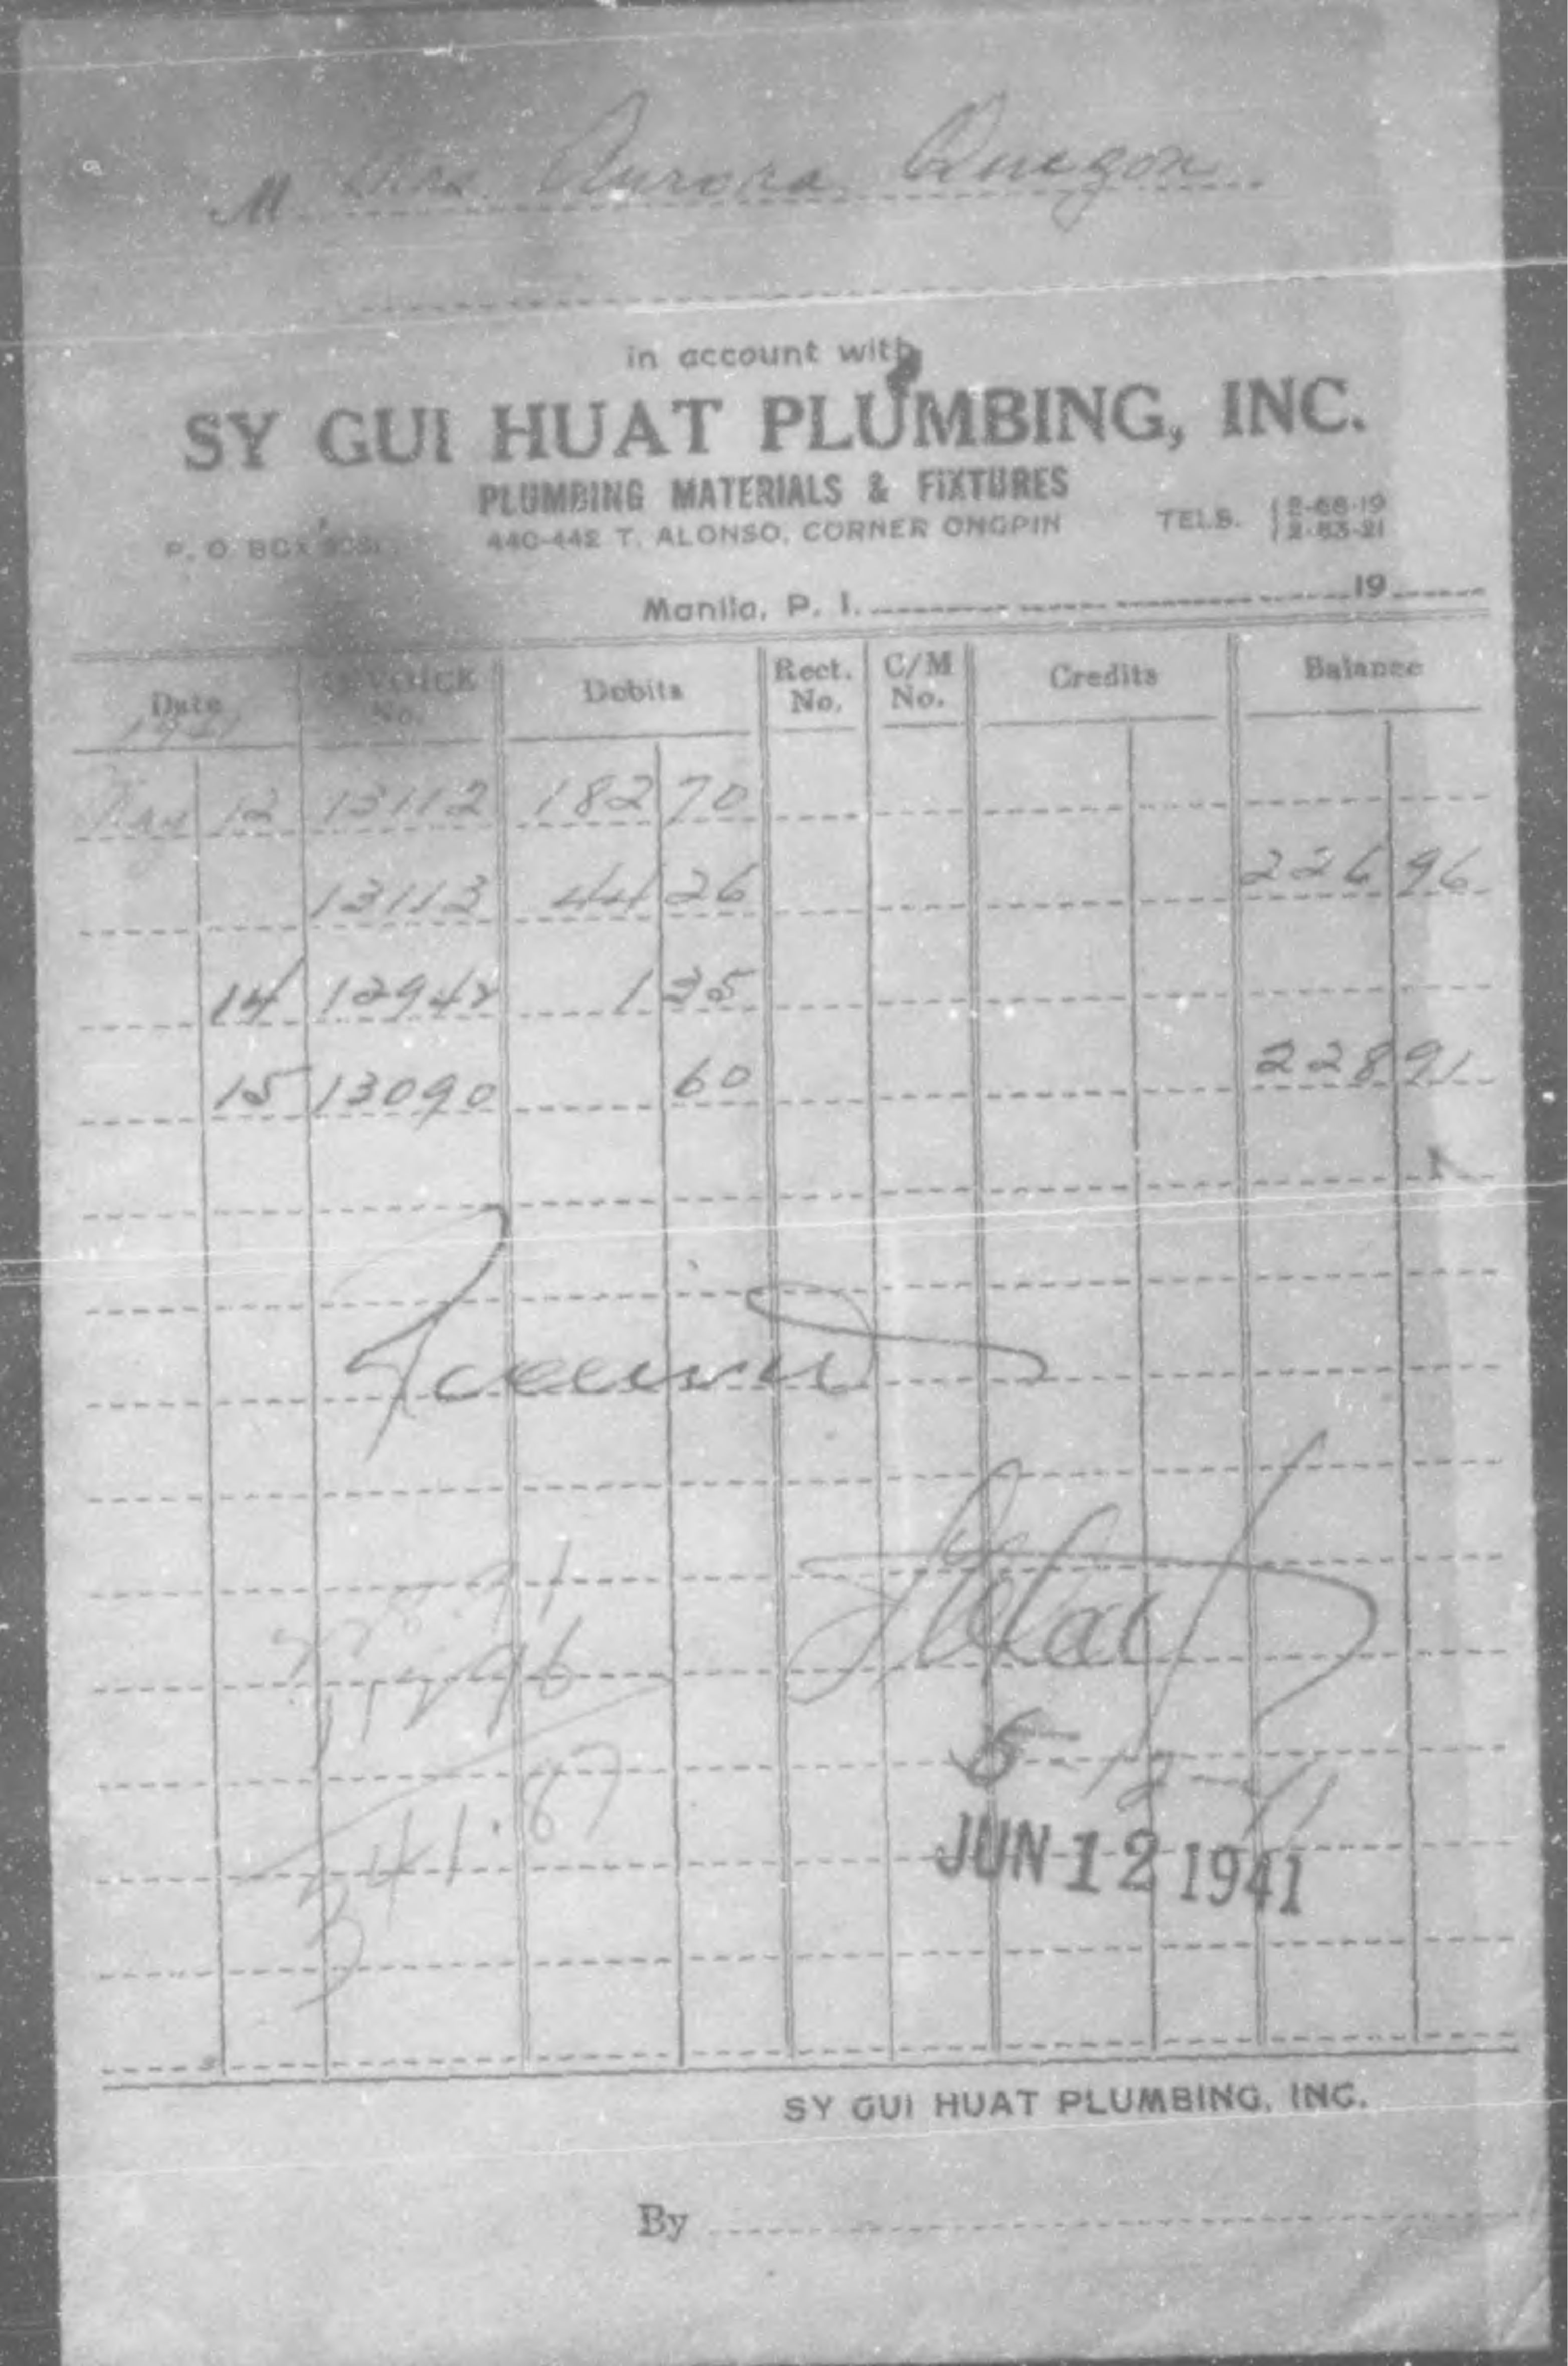 M Mrs. Aurora Quezon
in account with
SY GUI HUAT PLUMBING, INC.
PLUMBING MATERIALS & FIXTURES
P. O. BOX
440-442 T. ALONSO, CORNER ONGPIN
TELS. 2-68-19
2-83-21
Manila, P. I. 19
Date INVOICE No. Debits Rect. No. C/M No. Credits Balance
1941
May 12 13112 182 70
13113 44 26 226 96
14 12948 1 35
15 13090 60 228 91
Received
228.91
112.96
341.87
JUN 12 1941
SY GUI HUAT PLUMBING, INC.
By